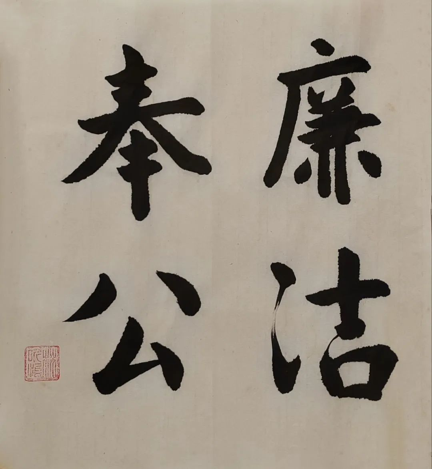 廉洁
奉公